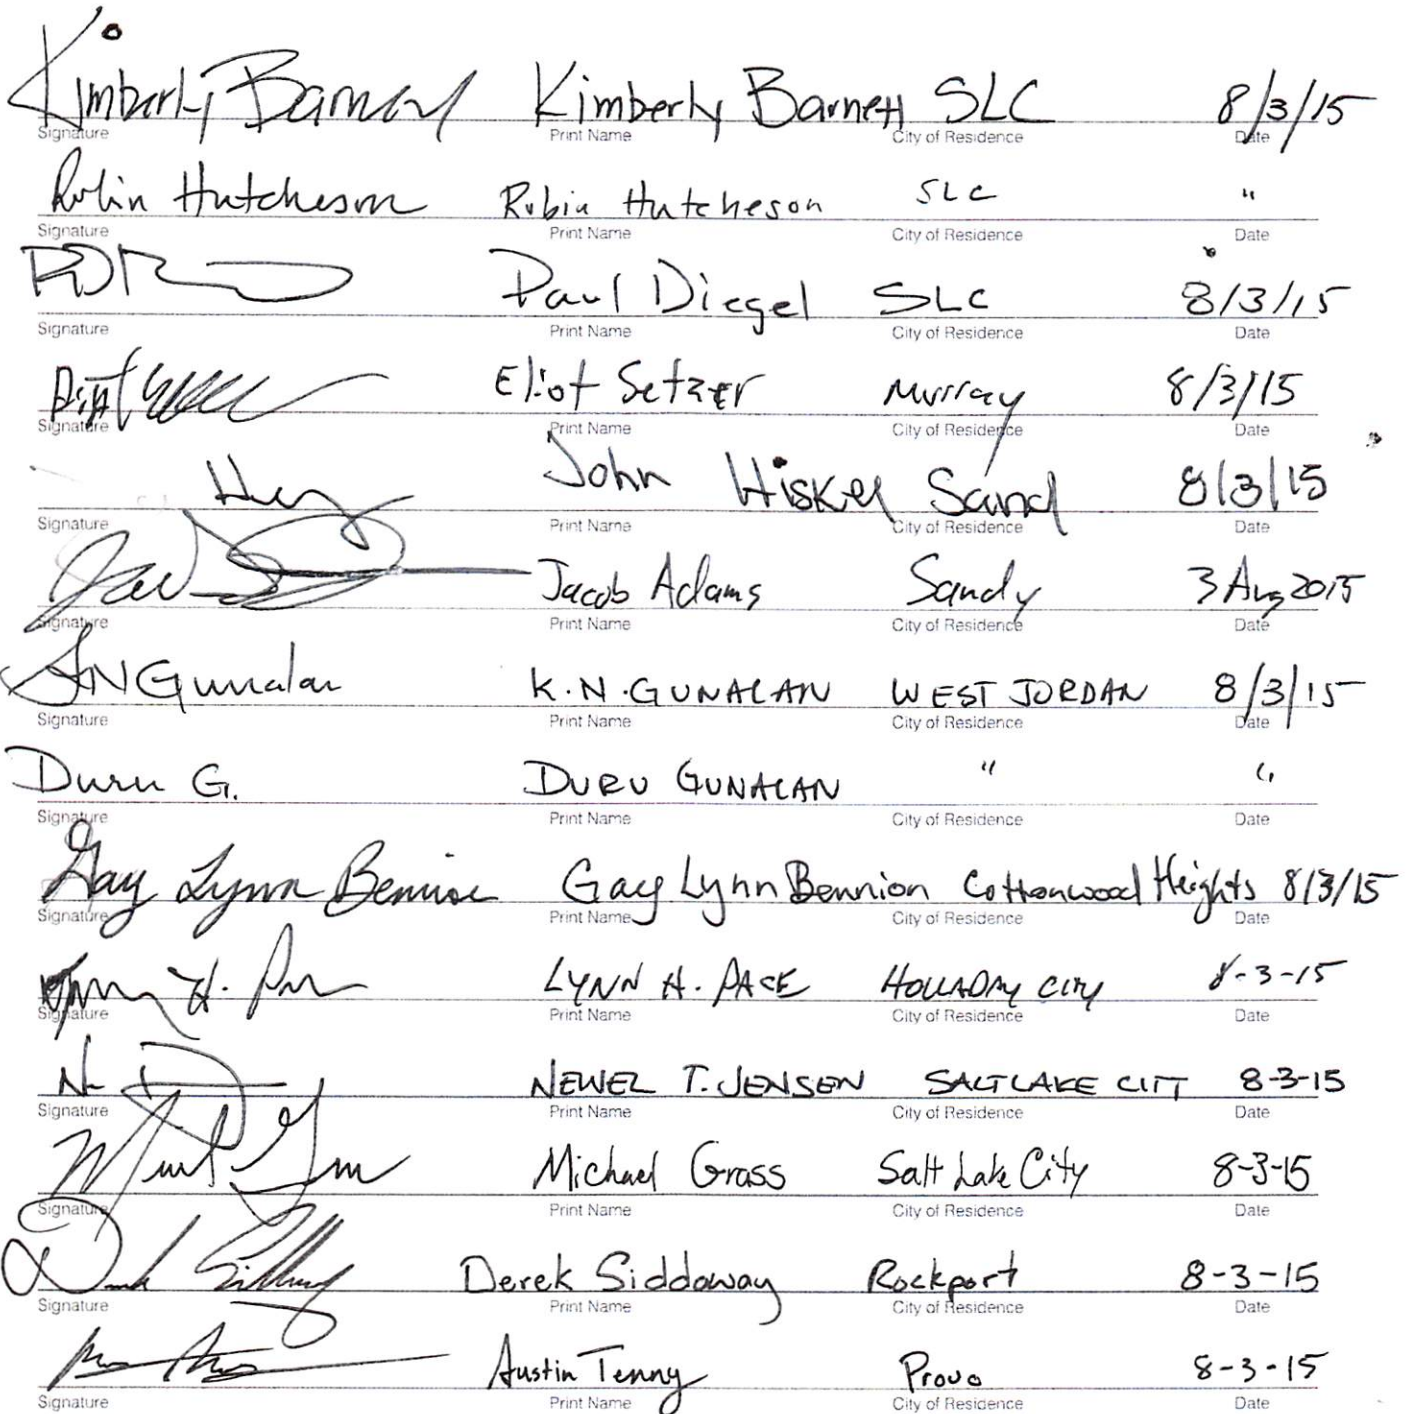 Kimberly Barnett Kimberly Barnett SLC 8/3/15
Signature Print Name City of Residence Date
Robin Hutcheson Robin Hutcheson SLC "
Signature Print Name City of Residence Date
Paul Diegel SLC 8/3/15
Signature Print Name City of Residence Date
Eliot Setzer Murray 8/3/15
Signature Print Name City of Residence Date
John Hiskey Sand 8/3/15
Signature Print Name City of Residence Date
Jacob Adams Sandy 3 Aug 2015
Signature Print Name City of Residence Date
KN Gunalan K.N.GUNALAN WEST JORDAN 8/3/15
Signature Print Name City of Residence Date
Duru G. DURU GUNALAN " "
Signature Print Name City of Residence Date
Gay Lynn Bennion Gay Lynn Bennion Cottonwood Heights 8/3/15
Signature Print Name City of Residence Date
LYNN H. PACE HOLLADAY CITY 8-3-15
Signature Print Name City of Residence Date
NEWEL T. JENSEN SALT LAKE CITY 8-3-15
Signature Print Name City of Residence Date
Michael Gross Salt Lake City 8-3-15
Signature Print Name City of Residence Date
Derek Siddoway Rockport 8-3-15
Signature Print Name City of Residence Date
Austin Tenny Provo 8-3-15
Signature Print Name City of Residence Date